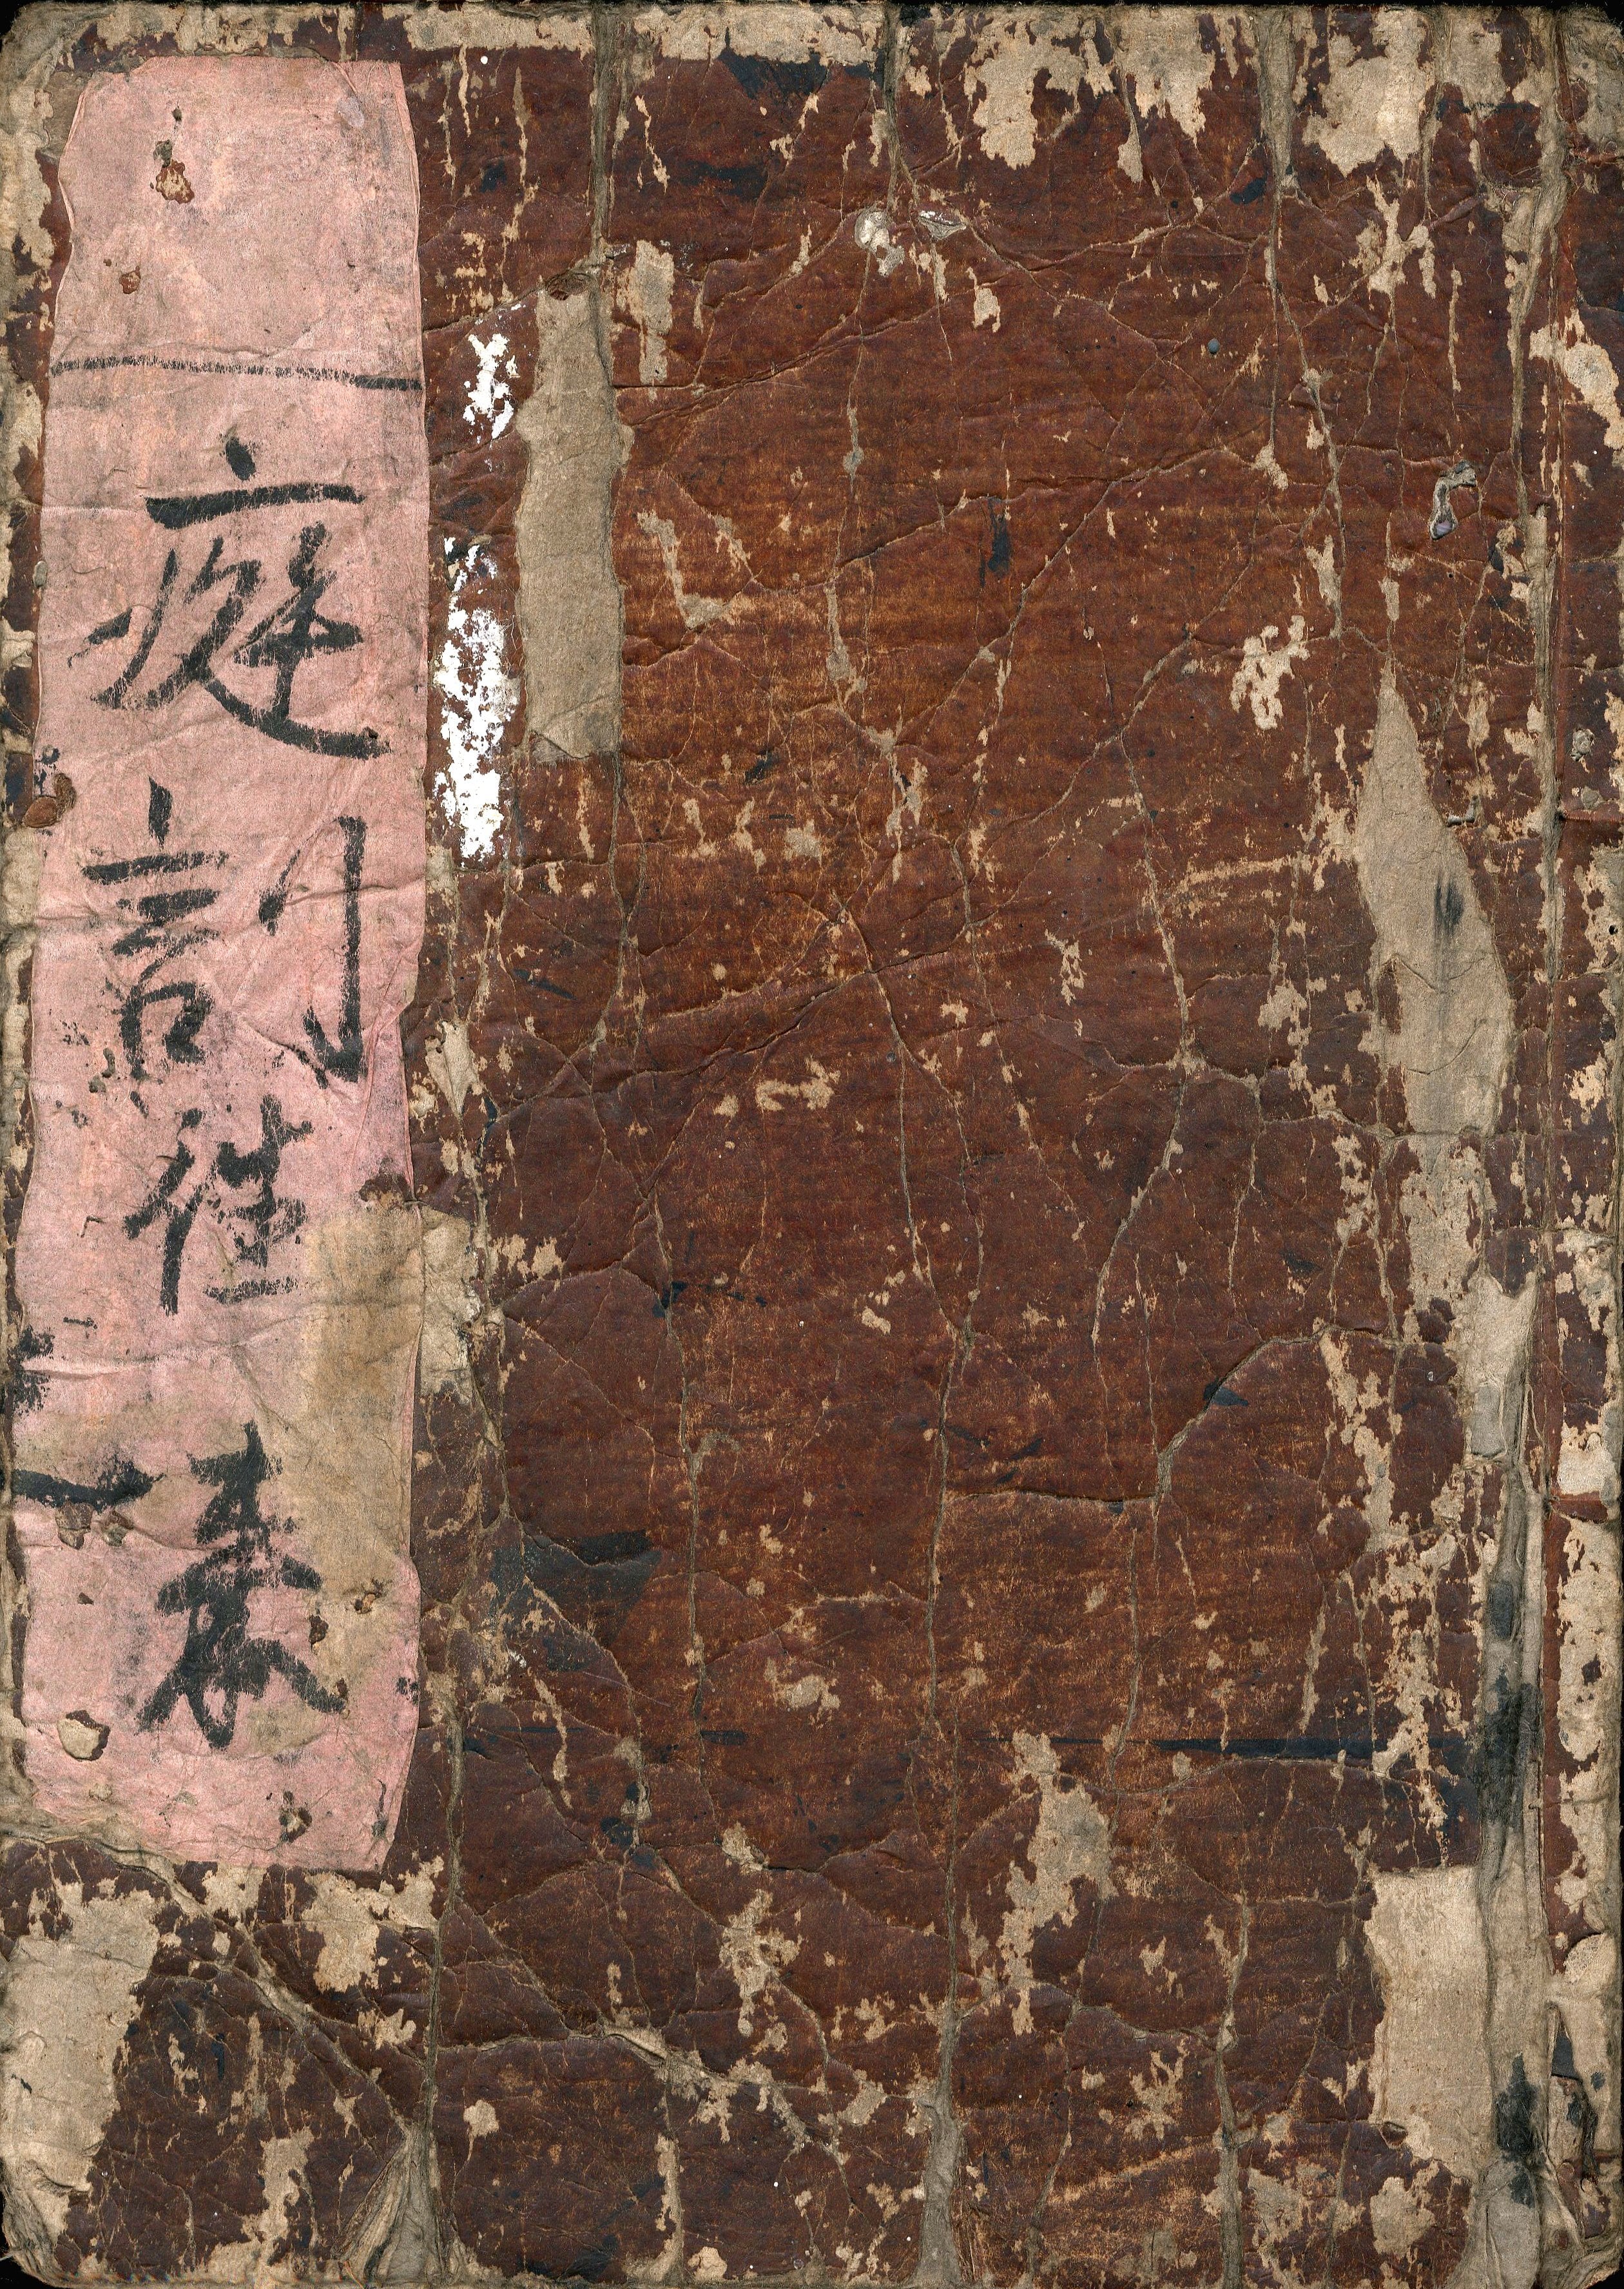 庭訓往来